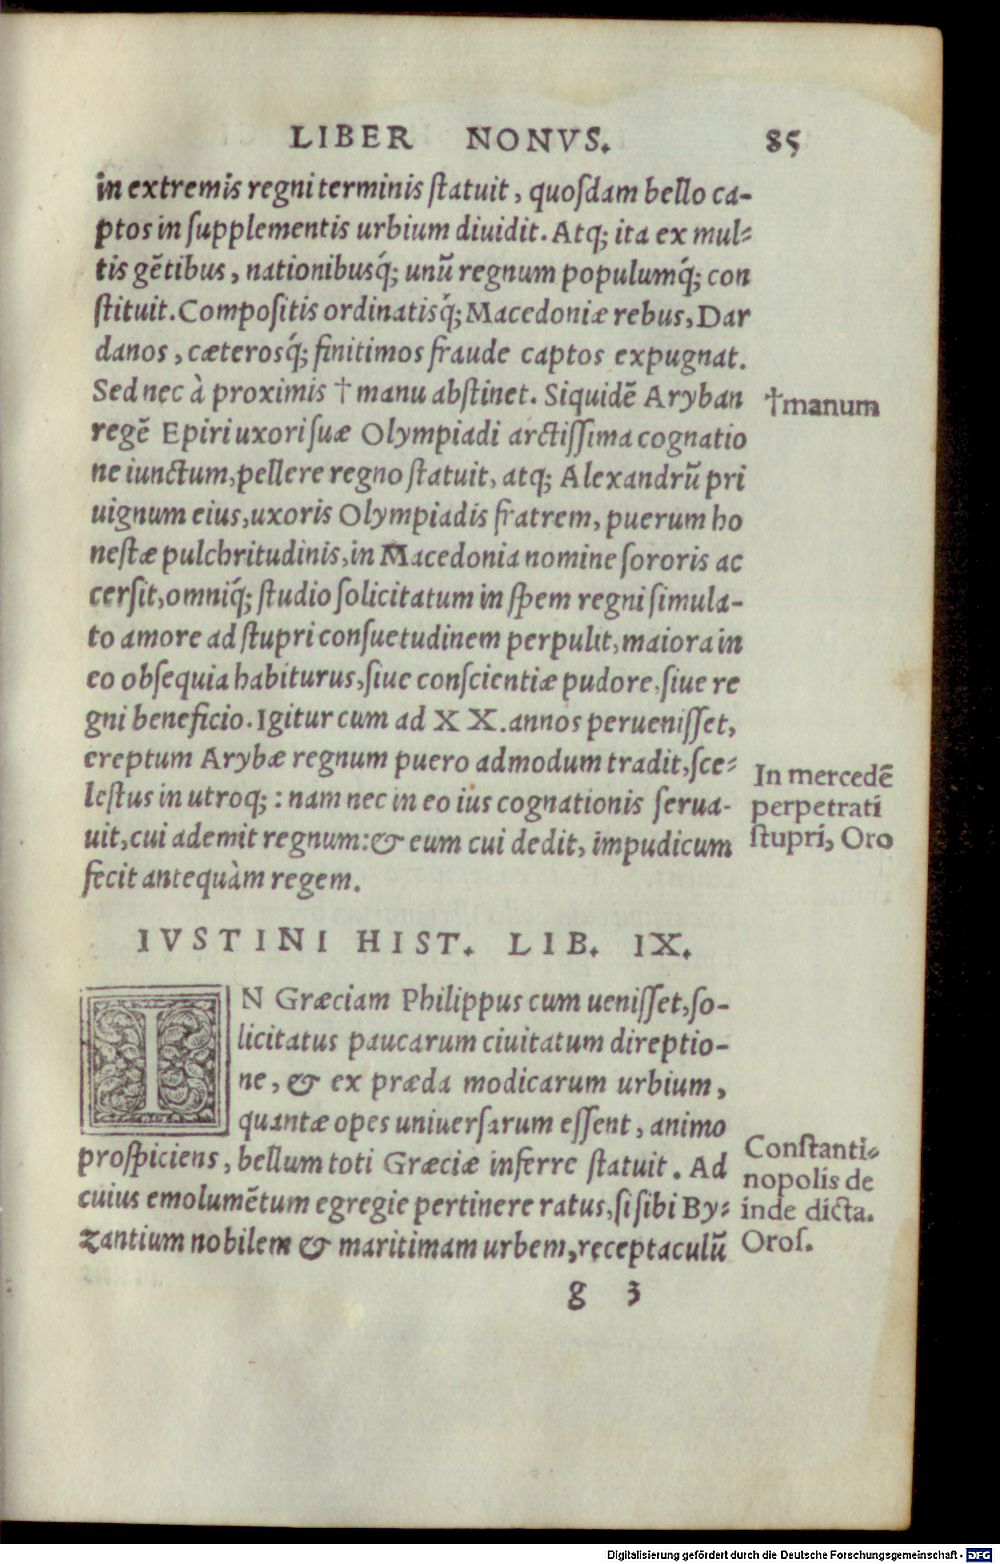 LIBER NONVS. 85
in extremis regni terminis ſtatuit, quoſdam bello ca-
ptos in ſupplementis urbium diuidit. Atq; ita ex mul-
tis gẽtibus, nationibusq́; unũ regnum populumq́; con
ſtituit. Compoſitis ordinatisq́; Macedoniæ rebus, Dar
danos, cæterosq́; finitimos fraude captos expugnat.
Sed nec à proximis † manu abſtinet. Siquidẽ Aryban
†manum
regẽ Epiri uxori ſuæ Olympiadi arctiſſima cognatio
ne iunctum, pellere regno ſtatuit, atq; Alexandrũ pri
uignum eius, uxoris Olympiadis fratrem, puerum ho
neſtæ pulchritudinis, in Macedonia nomine ſororis ac
cerſit, omniq́; ſtudio ſolicitatum in ſpem regni ſimula-
to amore ad ſtupri conſuetudinem perpulit, maiora in
eo obſequia habiturus, ſiue conſcientiæ pudore, ſiue re
gni beneficio. Igitur cum ad XX. annos perueniſſet,
ereptum Arybæ regnum puero admodum tradit, ſce-
leſtus in utroq; : nam nec in eo ius cognationis ſerua-
uit, cui ademit regnum: & eum cui dedit, impudicum
fecit antequàm regem.
In mercedẽ
perpetrati
ſtupri, Oro
IVSTINI HIST. LIB. IX.
IN Græciam Philippus cum ueniſſet, ſo-
licitatus paucarum ciuitatum direptio-
ne, & ex præda modicarum urbium,
quantæ opes uniuerſarum eſſent, animo
proſpiciens, bellum toti Græciæ inferre ſtatuit. Ad
cuius emolumẽtum egregie pertinere ratus, ſi ſibi By-
zantium nobilem & maritimam urbem, receptaculũ
Conſtanti-
nopolis de
inde dicta.
Oroſ.
g 3
Digitalisierung gefördert durch die Deutsche Forschungsgemeinschaft - DFG